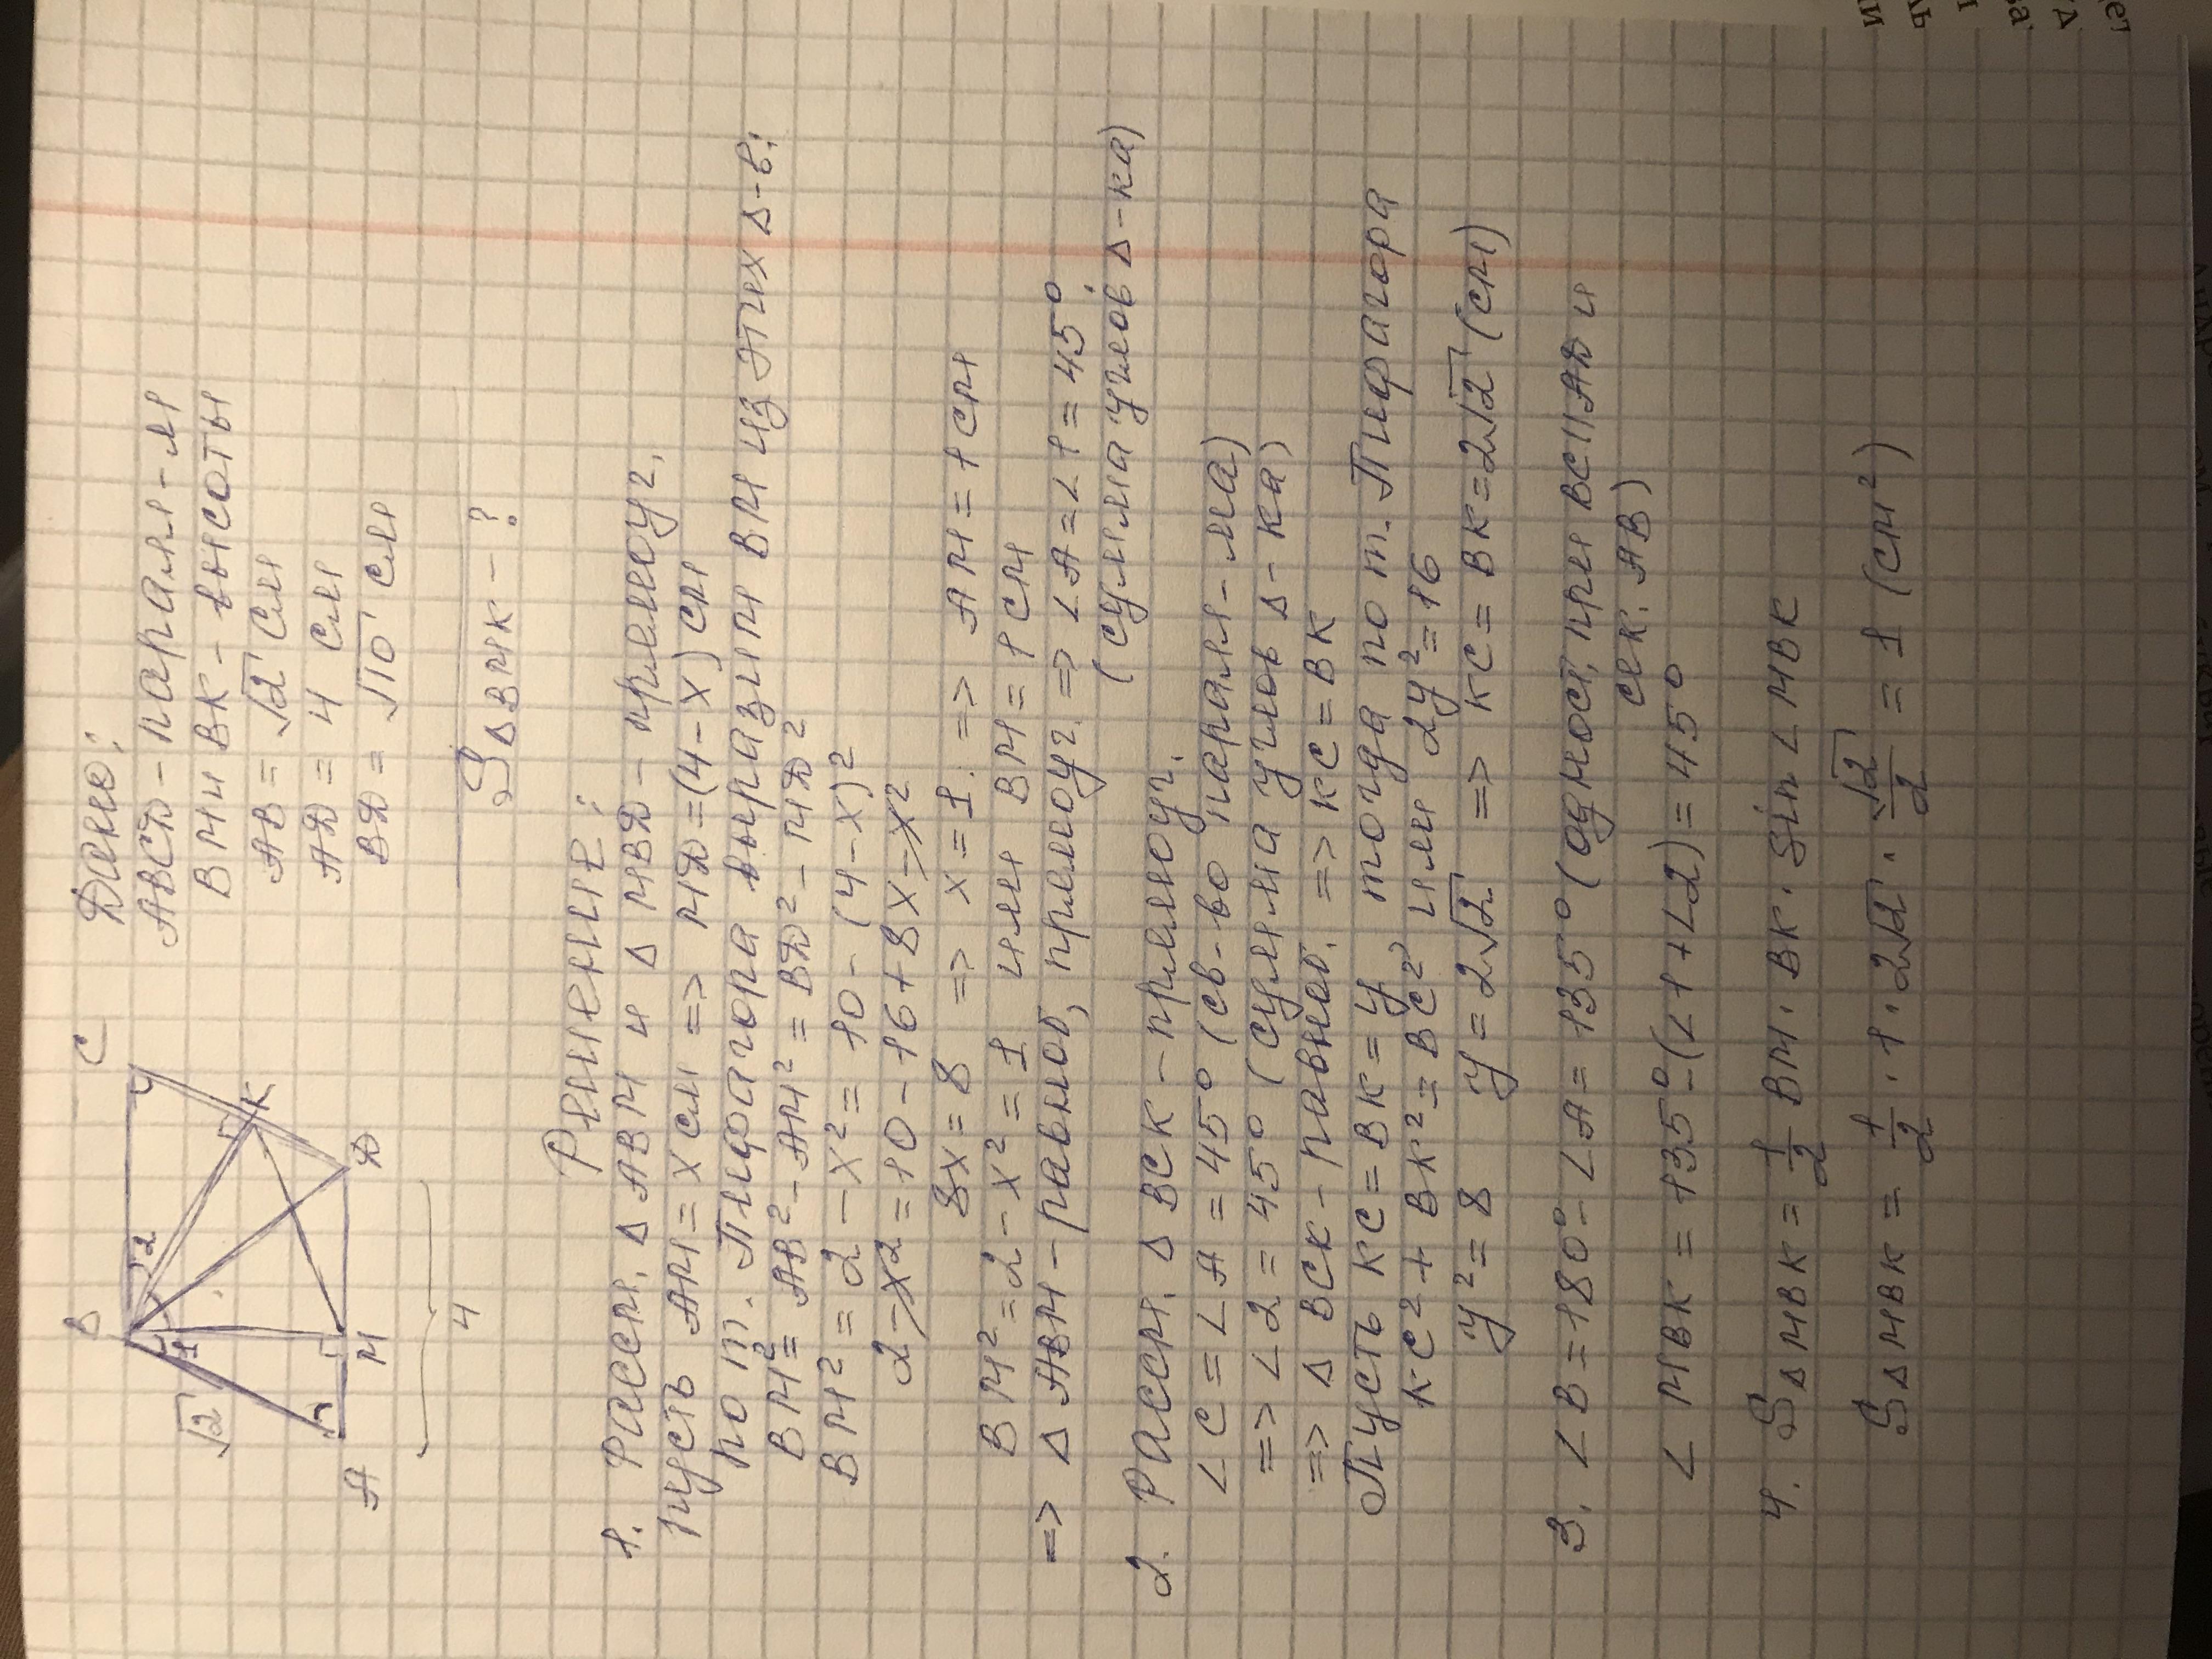 B
C
√2
1
2
K
A
M
D
4
Дано:
ABCD - парал-м
BM и BK - высоты
AB = √2 см
AD = 4 см
BD = √10 см
S△BMK - ?
Решение:
1. Рассм. △ABM и △MBD - прямоуг.
Пусть AM = x см => MD = (4-x) см
по т. Пифагора выразим BM из этих △-в:
BM² = AB² - AM² = BD² - MD²
BM² = 2 - x² = 10 - (4-x)²
2 - x² = 10 - 16 + 8x - x²
8x = 8 => x = 1. => AM = 1 см
BM² = 2 - x² = 1 или BM = 1 см
=> △ABM - равноб, прямоуг. => ∠A = ∠1 = 45°
(сумма углов △-ка)
2. Рассм. △BCK - прямоуг.
∠C = ∠A = 45° (св-во парал-ма)
=> ∠2 = 45° (сумма углов △-ка)
=> △BCK - равноб. => KC = BK
Пусть KC = BK = y тогда по т. Пифагора
KC² + BK² = BC² или 2y² = 16
y² = 8 y = 2√2 => KC = BK = 2√2 (см)
3. ∠B = 180° - ∠A = 135° (одност. при BC || AD и
сек. AB)
∠MBK = 135° - (∠1 + ∠2) = 45°
4. S△MBK = 1/2 BM · BK · sin ∠MBK
S△MBK = 1/2 · 1 · 2√2 · √2/2 = 1 (см²)